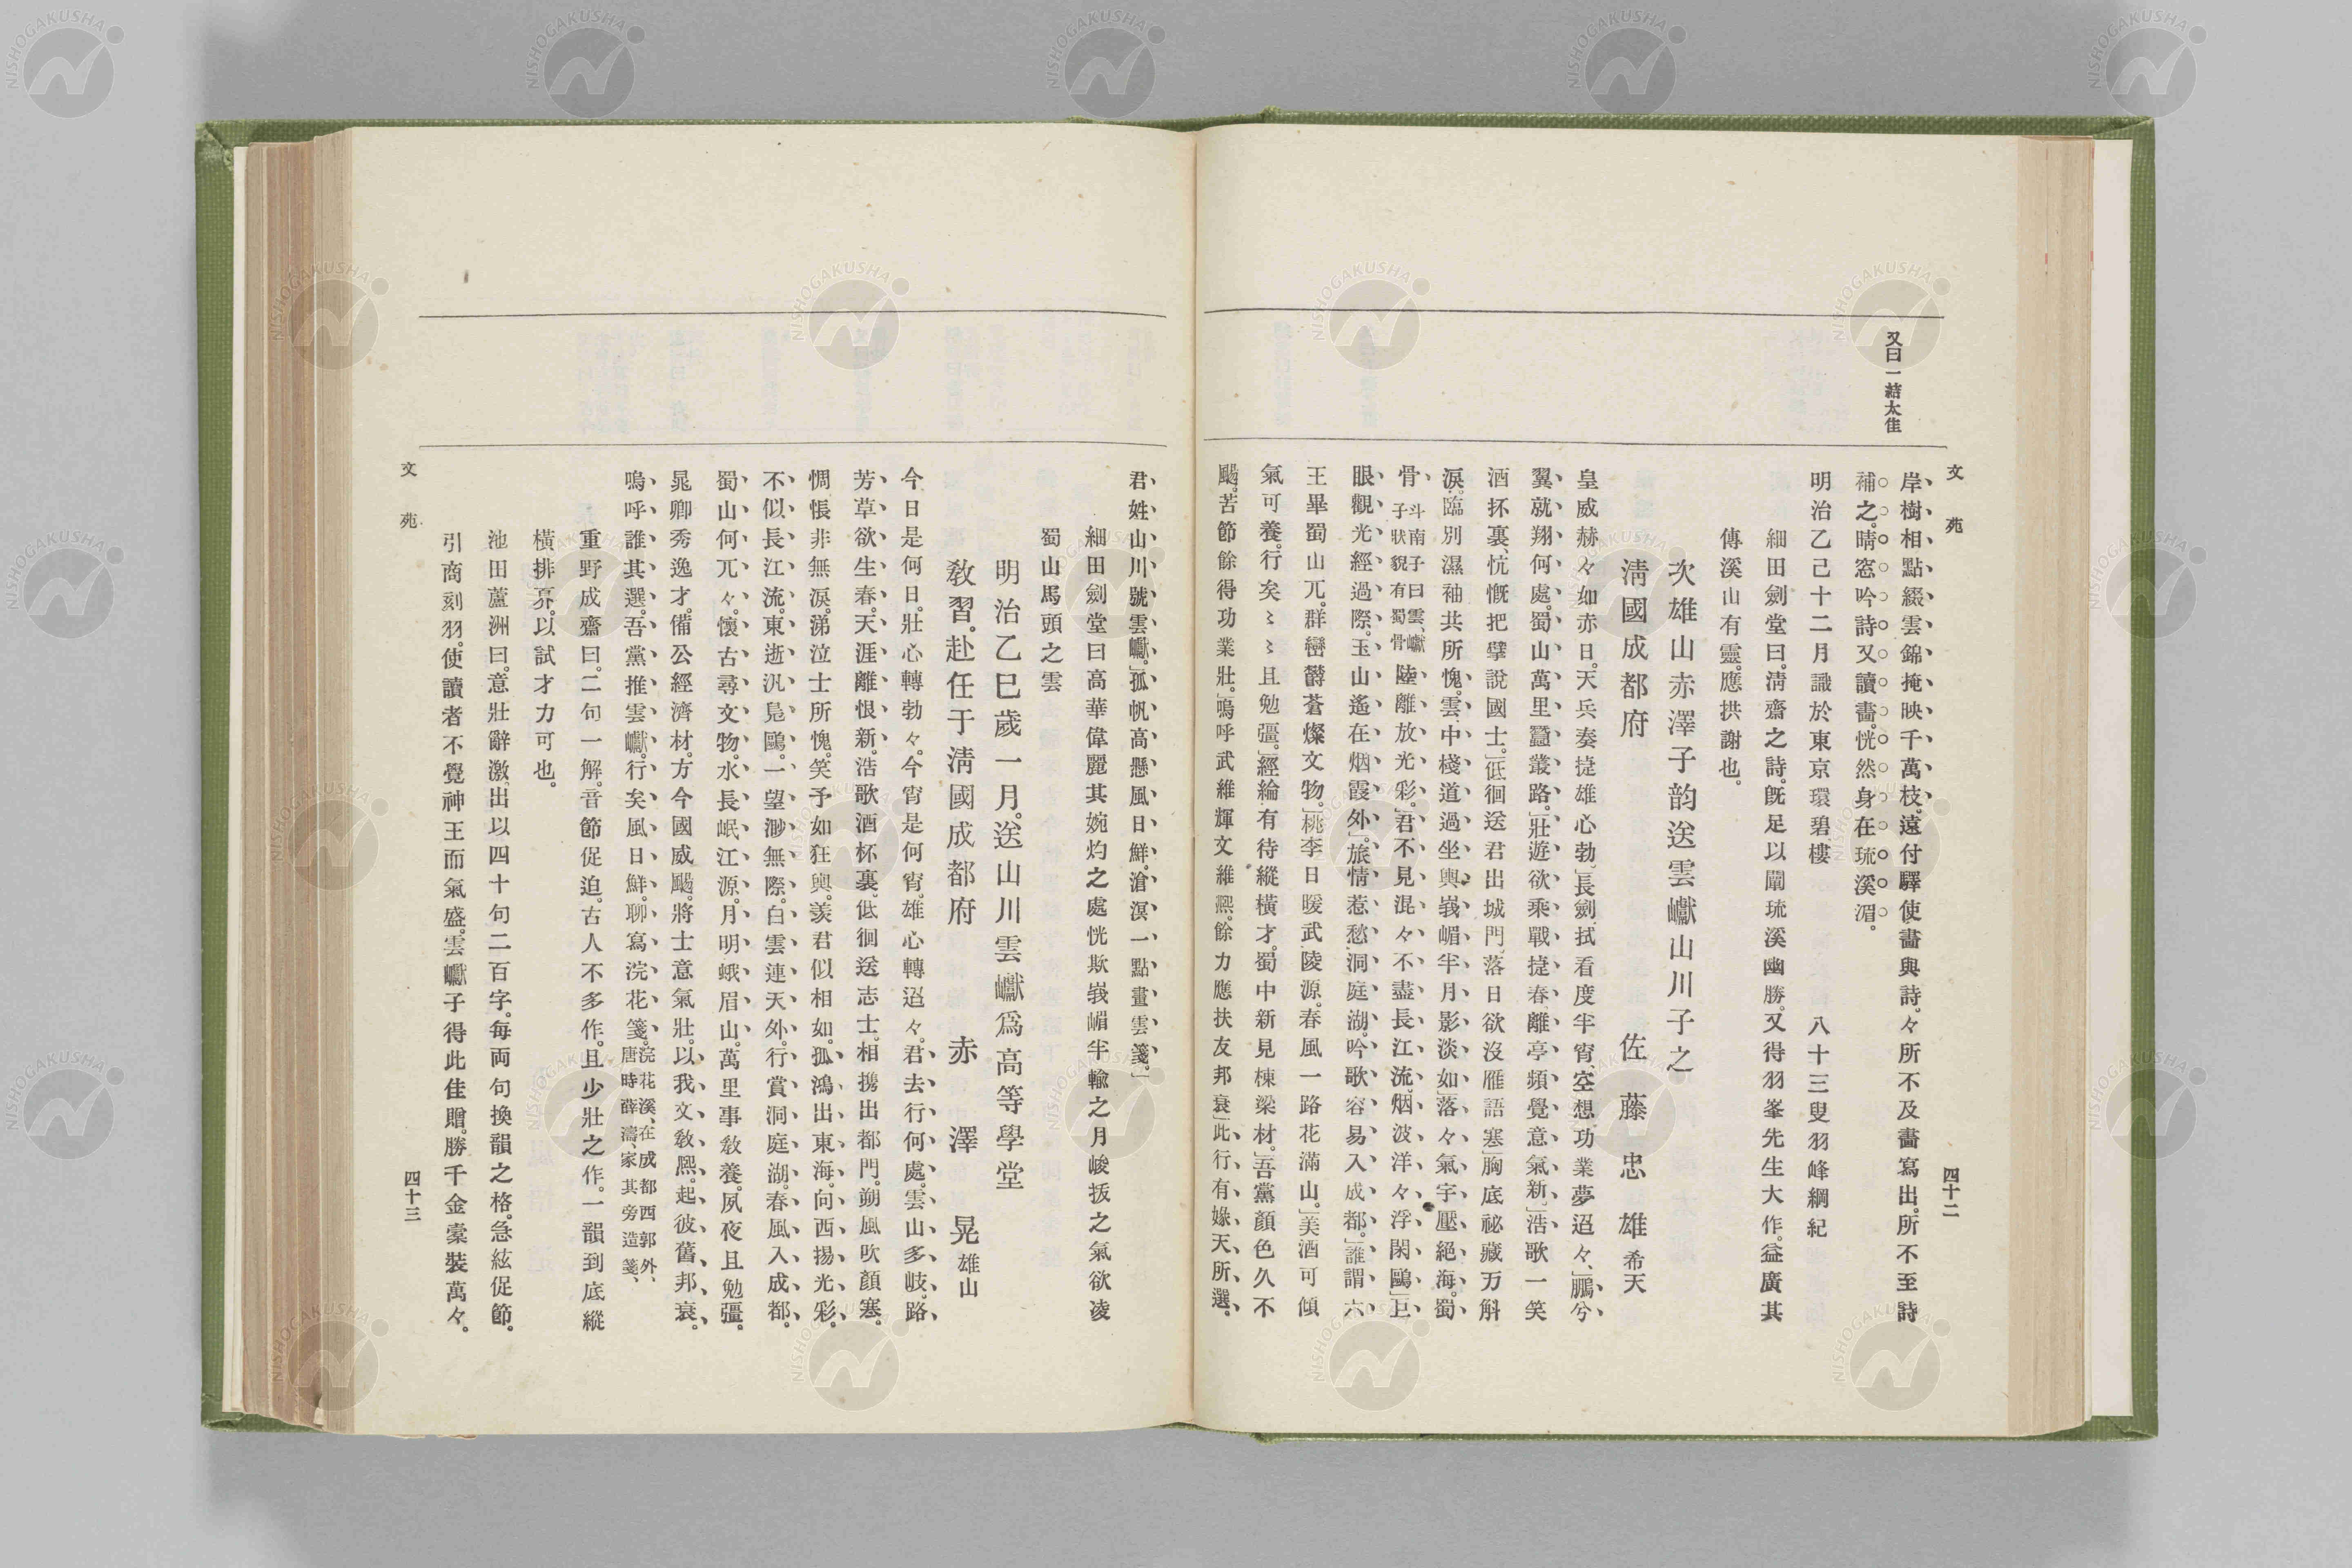 文苑
四十二
又曰一結太佳
岸樹相點綴雲錦掩映千萬枝。遠付驛使畵與詩。々所不及畵寫出。所不至詩
補之。晴窓吟詩又讀畵。恍然身在琉溪湄。
明治乙巳十二月識於東京環碧樓 八十三叟羽峰綱紀
細田劍堂曰。淸齋之詩。旣足以闡琉溪幽勝。又得羽峯先生大作。益廣其
傳溪山有靈。應拱謝也。
次雄山赤澤子韵送雲巘山川子之
淸國成都府 佐藤忠雄希天
皇威赫々如赤日。天兵奏捷雄心勃、長劍拭看度半宵、空想功業夢迢々、」鵬兮
翼就翔何處。蜀山萬里蠶叢路。」壯遊欲乘戰捷春、離亭頻覺意氣新、」浩歌一笑
酒抔裏、忼慨把擘說國士。」低徊送君出城門、落日欲沒雁語寒」胸底祕藏万斛
淚。臨別濕袖共所愧。雲中棧道過坐輿、峩嵋半月影淡如、」落々氣宇壓絕海。蜀
骨斗南子曰雲巘子狀貌有蜀骨陸離放光彩。」君不見混々不盡長江流、烟波洋々浮閑鷗」巨
眼觀光經過際。玉山遙在烟霞外」。旅情惹愁洞庭湖。吟歌容易入成都。」誰謂六
王畢蜀山兀。群巒欝蒼燦文物。」桃李日暖武陵源。春風一路花滿山。」美酒可傾
氣可養。行矣〻〻且勉彊。」經綸有待縱橫才。蜀中新見棟梁材。」吾黨顏色久不
颺。苦節餘得功業壯。」嗚呼武維輝文維熙。餘力應扶友邦衰」此行有緣天所選。
君姓山川號雲巘。」孤帆高懸風日鮮。滄溟一點畫雲箋。」
細田劍堂曰高華偉麗其婉灼之處恍欺峩嵋半輪之月峻拔之氣欲凌
蜀山馬頭之雲
明治乙巳歲一月。送山川雲巘爲高等學堂
敎習。赴任于淸國成都府 赤澤晃雄山
今日是何日。壯心轉勃々。今宵是何宵。雄心轉迢々。君去行何處。雲山多岐路。
芳草欲生春。天涯離恨新。浩歌酒杯裏。低徊送志士。相携出都門。朔風吹顏寒。
惆悵非無淚。涕泣士所愧。笑予如狂輿。羨君似相如。孤鴻出東海。向西揚光彩。
不似長江流。東逝汎鳧鷗。一望渺無際。白雲連天外。行賞洞庭湖。春風入成都。
蜀山何兀々。懷古尋文物。水長岷江源。月明蛾眉山。萬里事敎養。夙夜且勉彊。
晁卿秀逸才。備公經濟材。方今國威颺。將士意氣壯。以我文敎熈。起彼舊邦衰。
嗚呼誰其選。吾黨推雲巘。行矣風日鮮。聊寫浣花箋。浣花溪、在成都西郭外、唐時薛濤、家其旁造箋、
重野成齋曰。二句一解。音節促迫。古人不多作。且少壯之作。一韻到底縱
橫排奡。以試才力可也。
池田蘆洲曰。意壯辭激、出以四十句二百字。每両句換韻之格。急絃促節。
引商刻羽。使讀者不覺神王而氣盛。雲巘子得此佳贈。勝千金槖裝萬々。
文苑
四十三